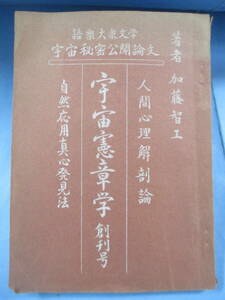 語樂大衆文学
宇宙秘密公開論文
著者 加藤智工
人間心理解剖論
宇宙憲章学 創刊号
自然応用真心発見法